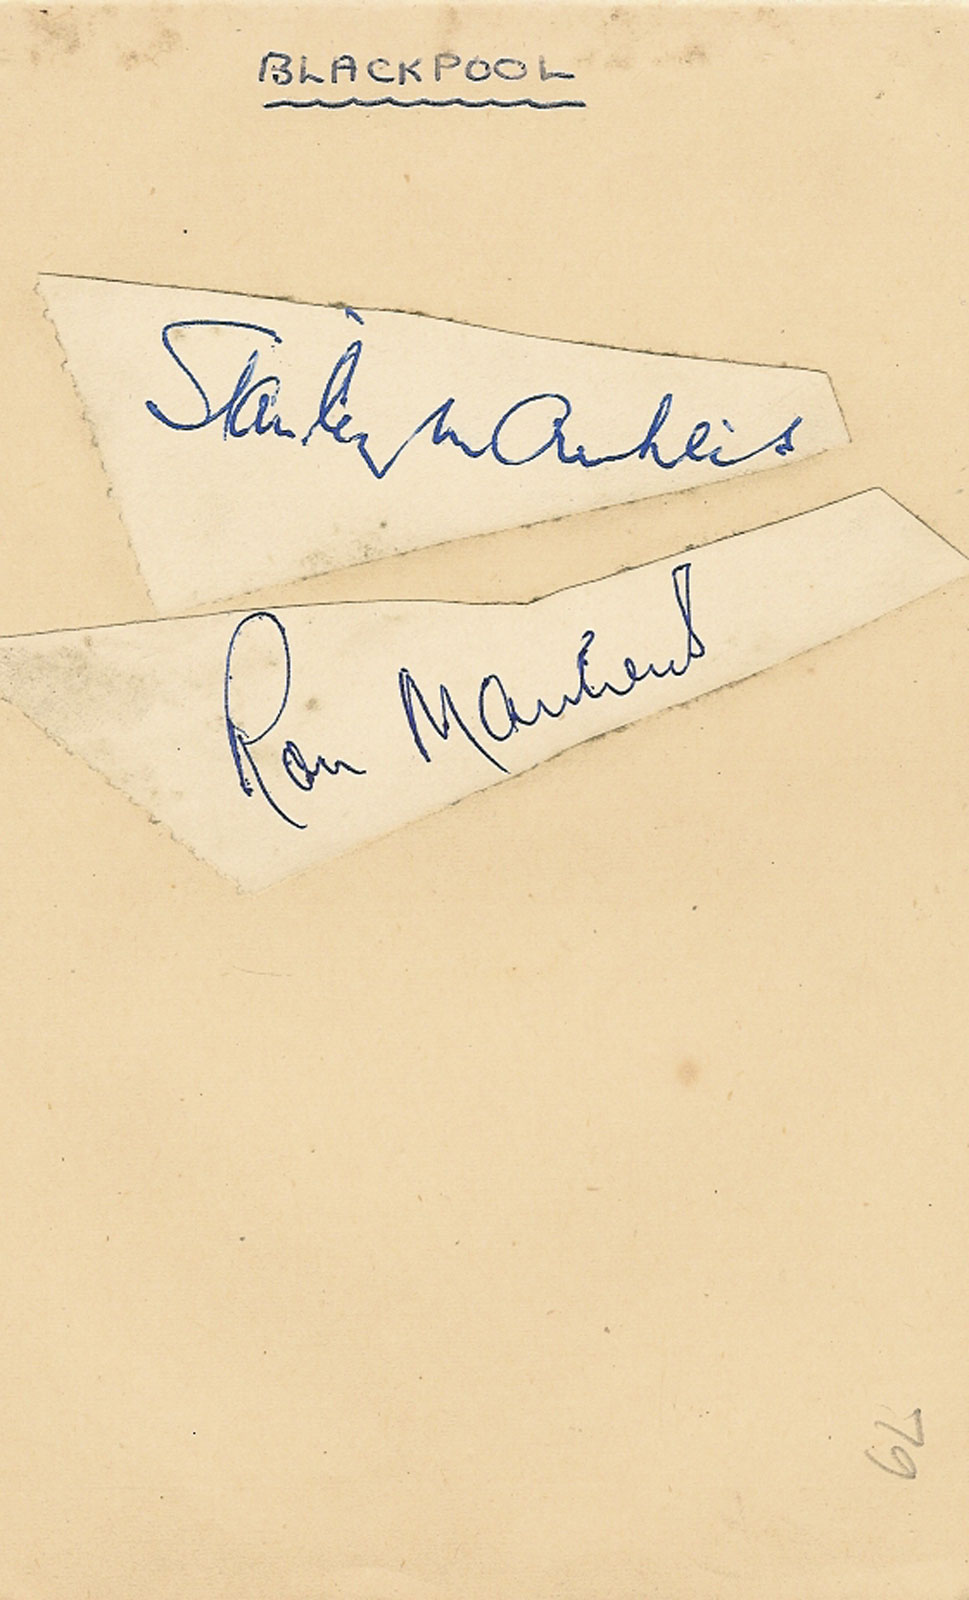 BLACKPOOL
Stanley Matthews
Ron
79